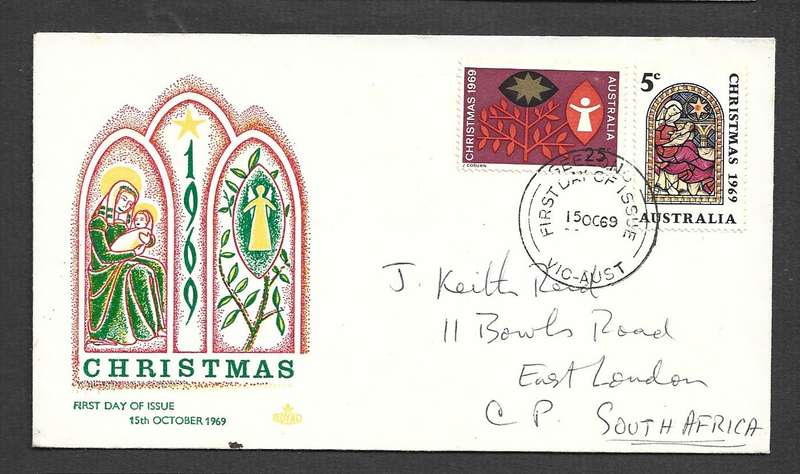 CHRISTMAS 1969
AUSTRALIA
25c
COBURN
5c
CHRISTMAS 1969
AUSTRALIA
GEELONG
FIRST DAY OF ISSUE
15OC69
VIC-AUST
1969
CHRISTMAS
FIRST DAY OF ISSUE
15th OCTOBER 1969
ROYAL
J. Keith Reid
11 Bowls Road
East London
C.P. SOUTH AFRICA